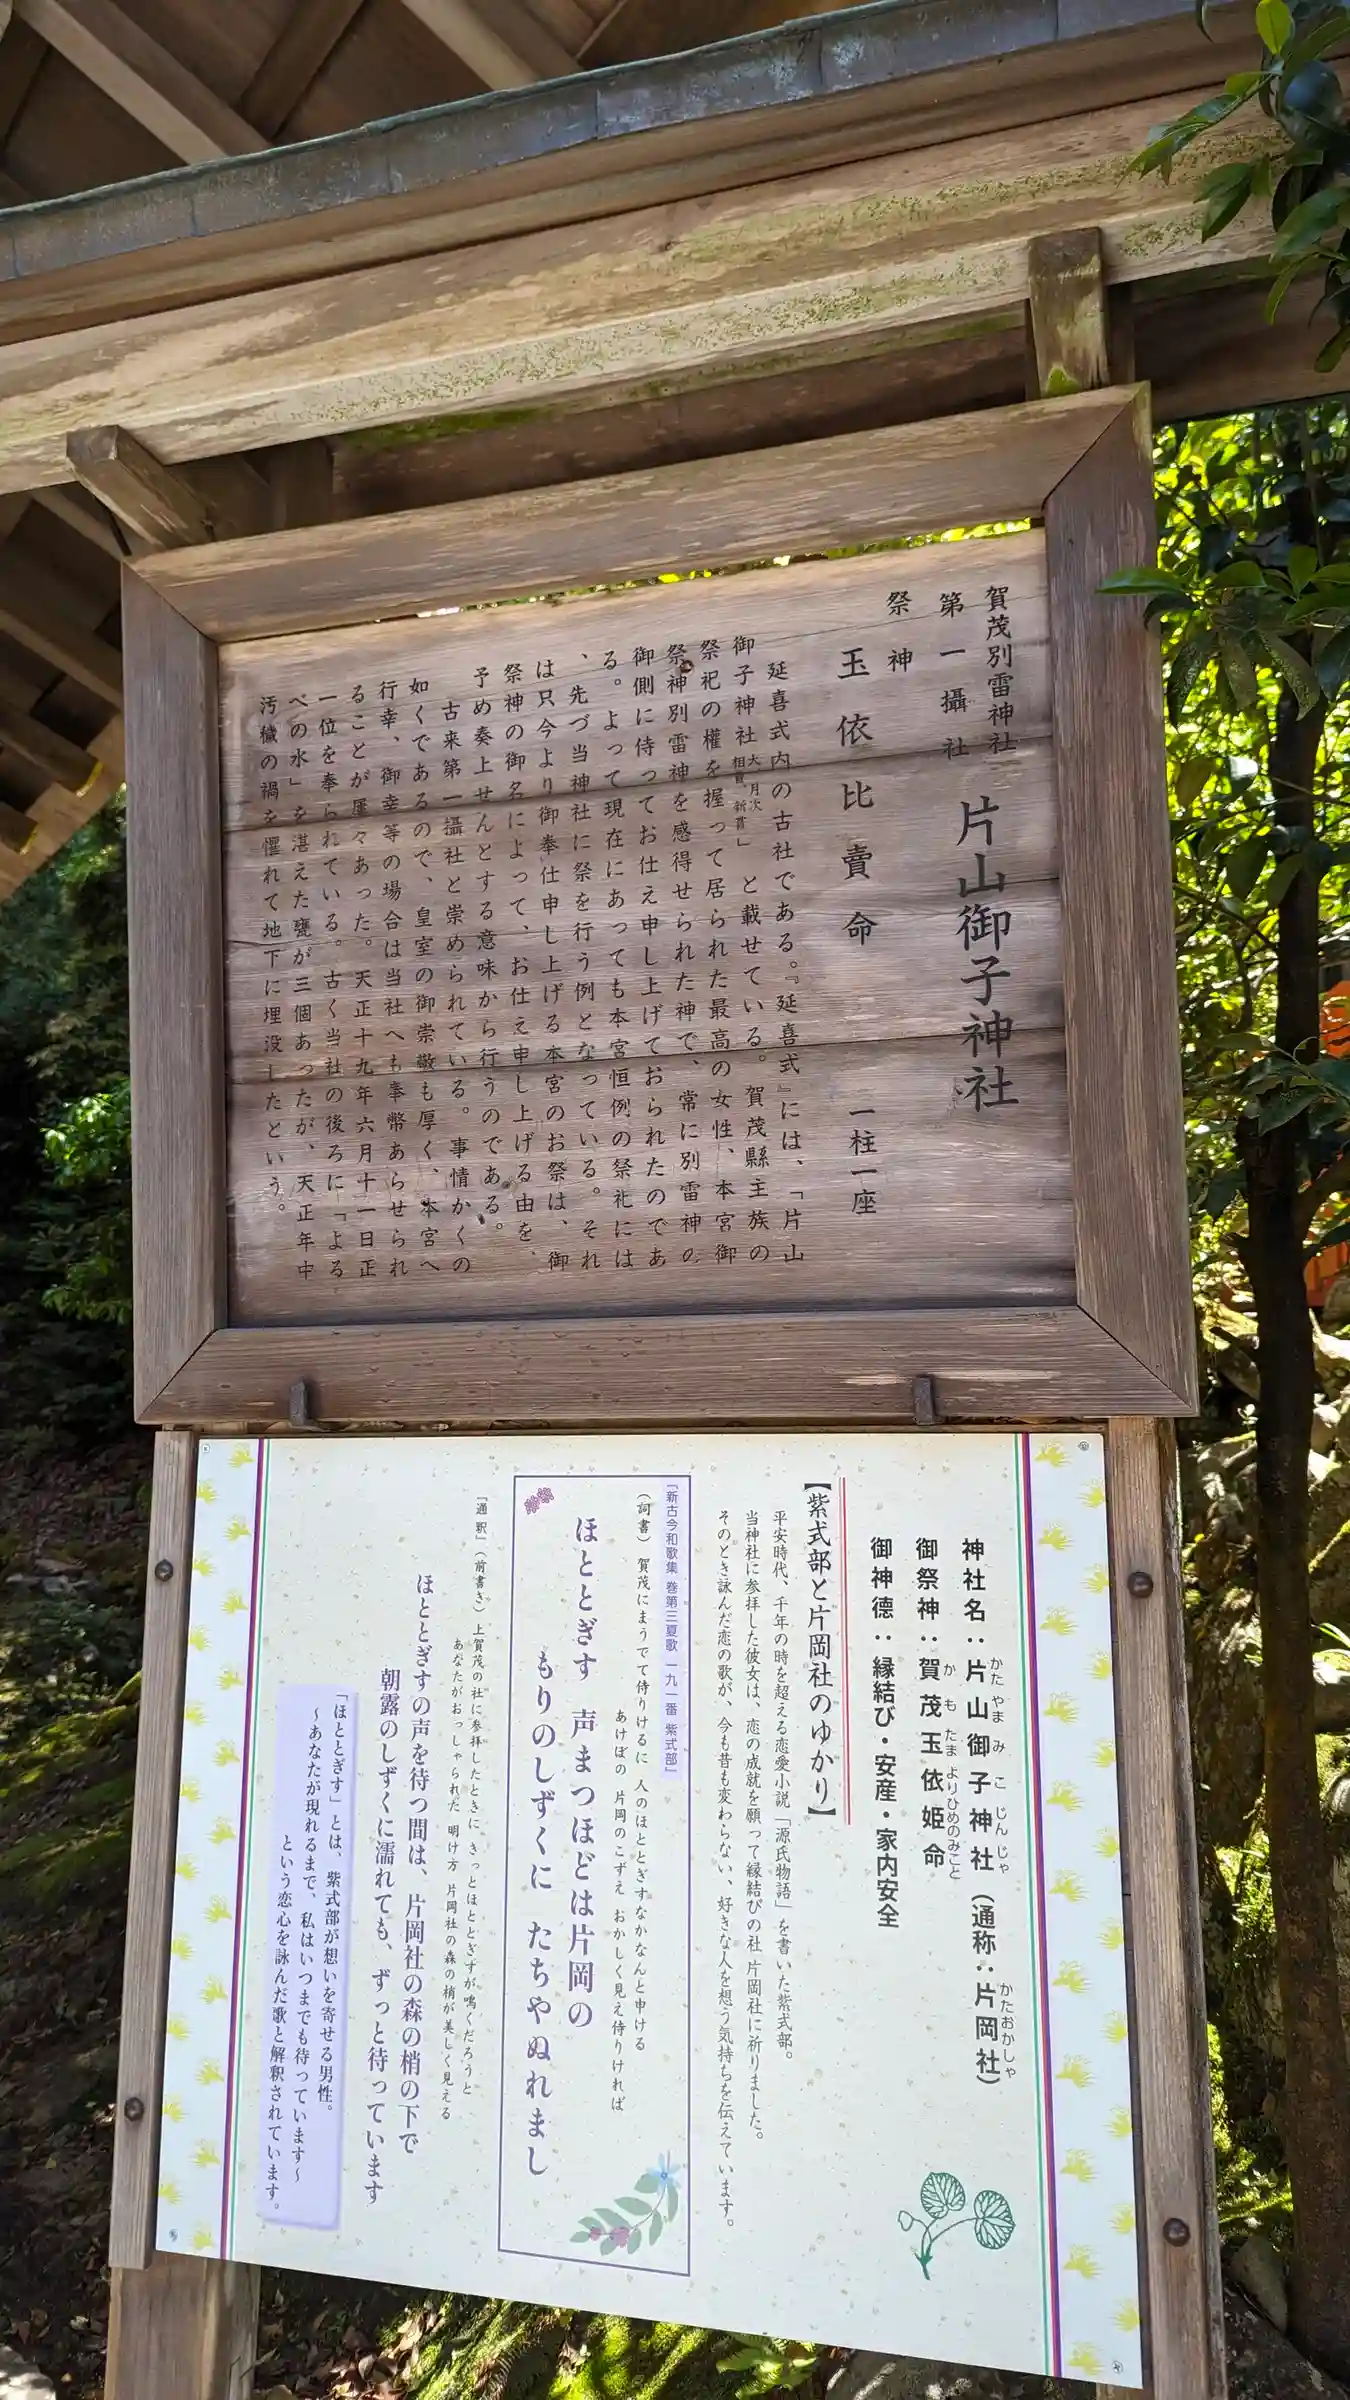 賀茂別雷神社
第一攝社 片山御子神社
祭神
玉依比賣命 一柱一座
延喜式内の古社である。『延喜式』には、「片山
御子神社 大 月次 相嘗 新嘗」と載せている。賀茂縣主族の
祭祀の權を握って居られた最高の女性、本宮御
祭神別雷神を感得せられた神で、常に別雷神の
御側に侍ってお仕え申し上げておられたのであ
る。よって現在にあっても本宮恒例の祭祀には
、先づ当神社に祭を行う例となっている。それ
は只今より御奉仕申し上げる本宮のお祭は、御
祭神の御名によって、お仕え申し上げる由を、
予め奏上せんとする意味から行うのである。
古来第一攝社と崇められている。事情かくの
如くであるので、皇室の御崇敬も厚く、本宮へ
行幸、御幸等の場合は当社へも奉幣あらせられ
ることが屢々あった。天正十九年六月十一日正
一位を奉られている。古く当社の後ろに「よる
べの水」を湛えた甕が三個あったが、天正年中
汚穢の禍を懼れて地下に埋没したという。
神社名：片山御子神社（通称：片岡社）
かた やま み こ じん じゃ かたおかしゃ
御祭神：賀茂玉依姫命
か も たま よりひめのみこと
御神徳：縁結び・安産・家内安全
【紫式部と片岡社のゆかり】
平安時代、千年の時を超える恋愛小説「源氏物語」を書いた紫式部。
当神社に参拝した彼女は、恋の成就を願って縁結びの社 片岡社に祈りました。
そのとき詠んだ恋の歌が、今も昔も変わらない、好きな人を想う気持ちを伝えています。
「新古今和歌集 巻第三夏歌 一九一番 紫式部」
（詞書） 賀茂にまうでて侍りけるに 人のほととぎすなかなんと申ける
あけぼの 片岡のこずえ おかしく見え侍りければ
ほととぎす 声まつほどは片岡の
もりのしずくに たちやぬれまし
「通釈」（前書き） 上賀茂の社に参拝したときに きっとほととぎすが鳴くだろうと
あなたがおっしゃられた 明け方 片岡社の森の梢が美しく見える
ほととぎすの声を待つ間は、片岡社の森の梢の下で
朝露のしずくに濡れても、ずっと待っています
「ほととぎす」とは、紫式部が想いを寄せる男性。
～あなたが現れるまで、私はいつまでも待っています～
という恋心を詠んだ歌と解釈されています。